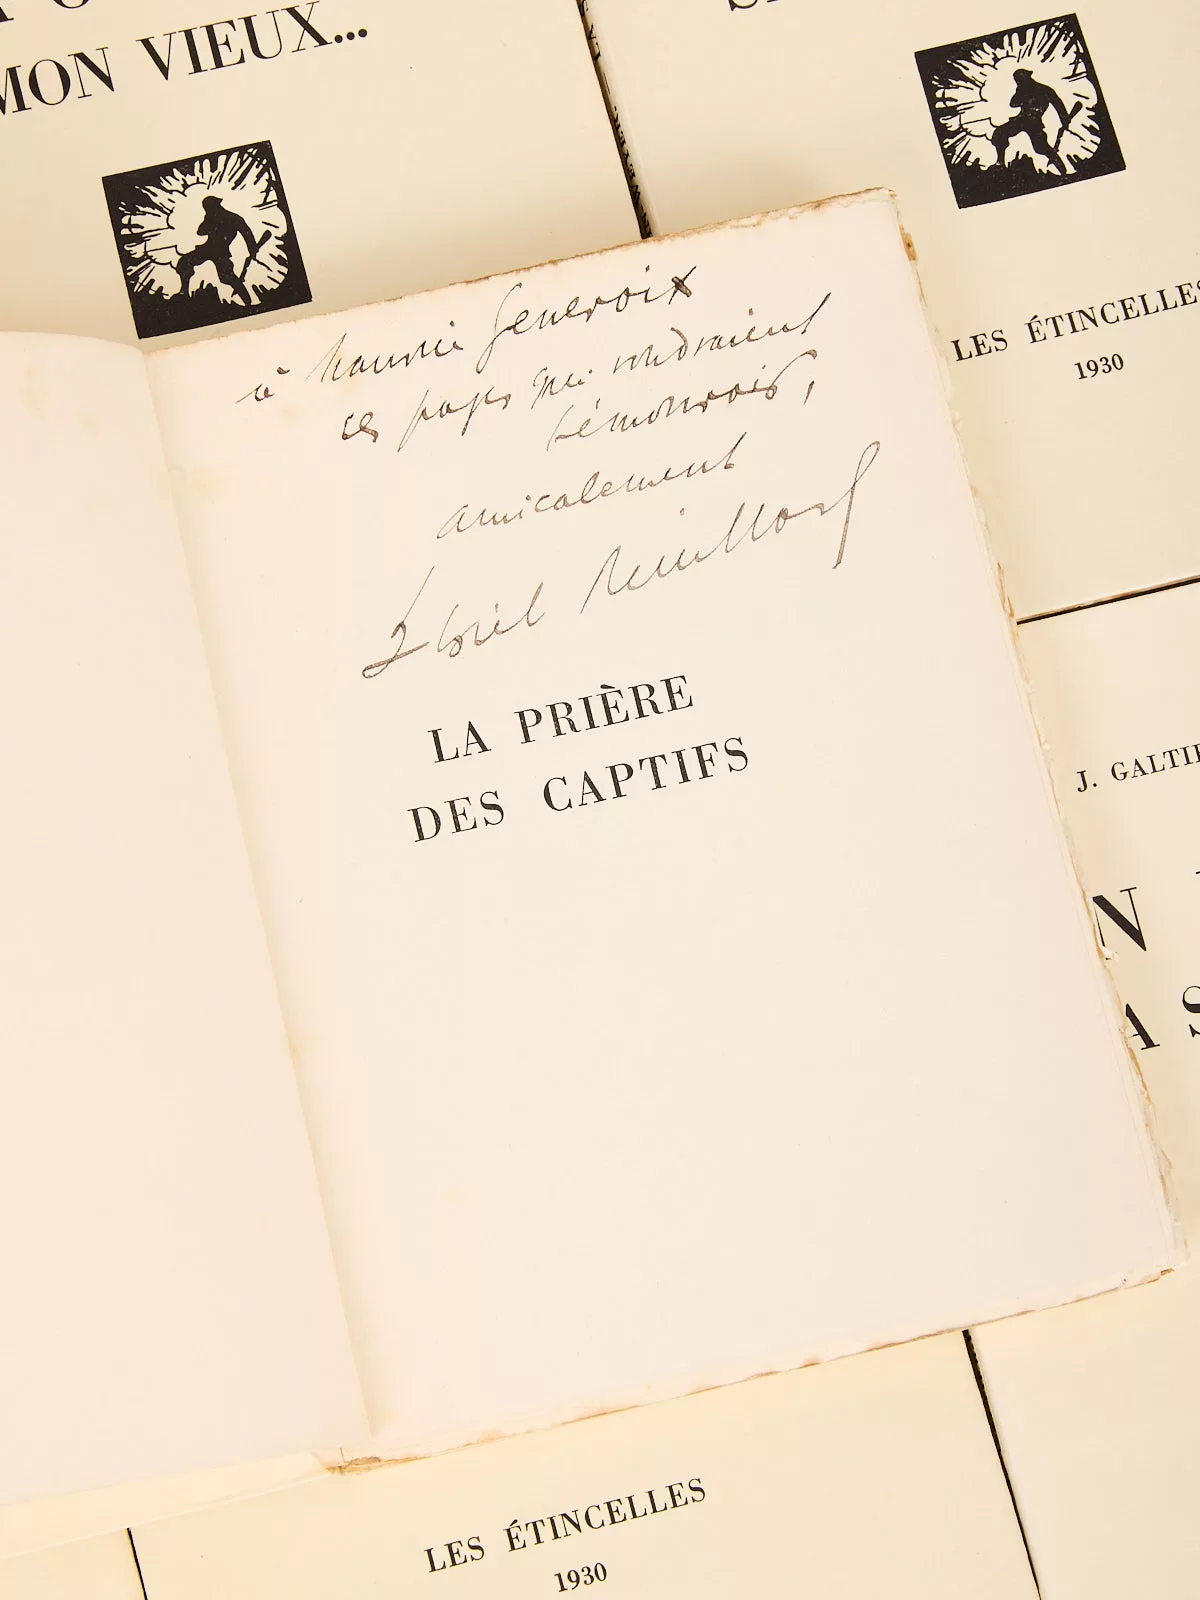 MON VIEUX...
LES ÉTINCELLES
1930
à Maurice Genevoix
ces pages qui voudraient
témoigner,
amicalement
LA PRIÈRE
DES CAPTIFS
J. GALTIE
N
AS
LES ÉTINCELLES
1930